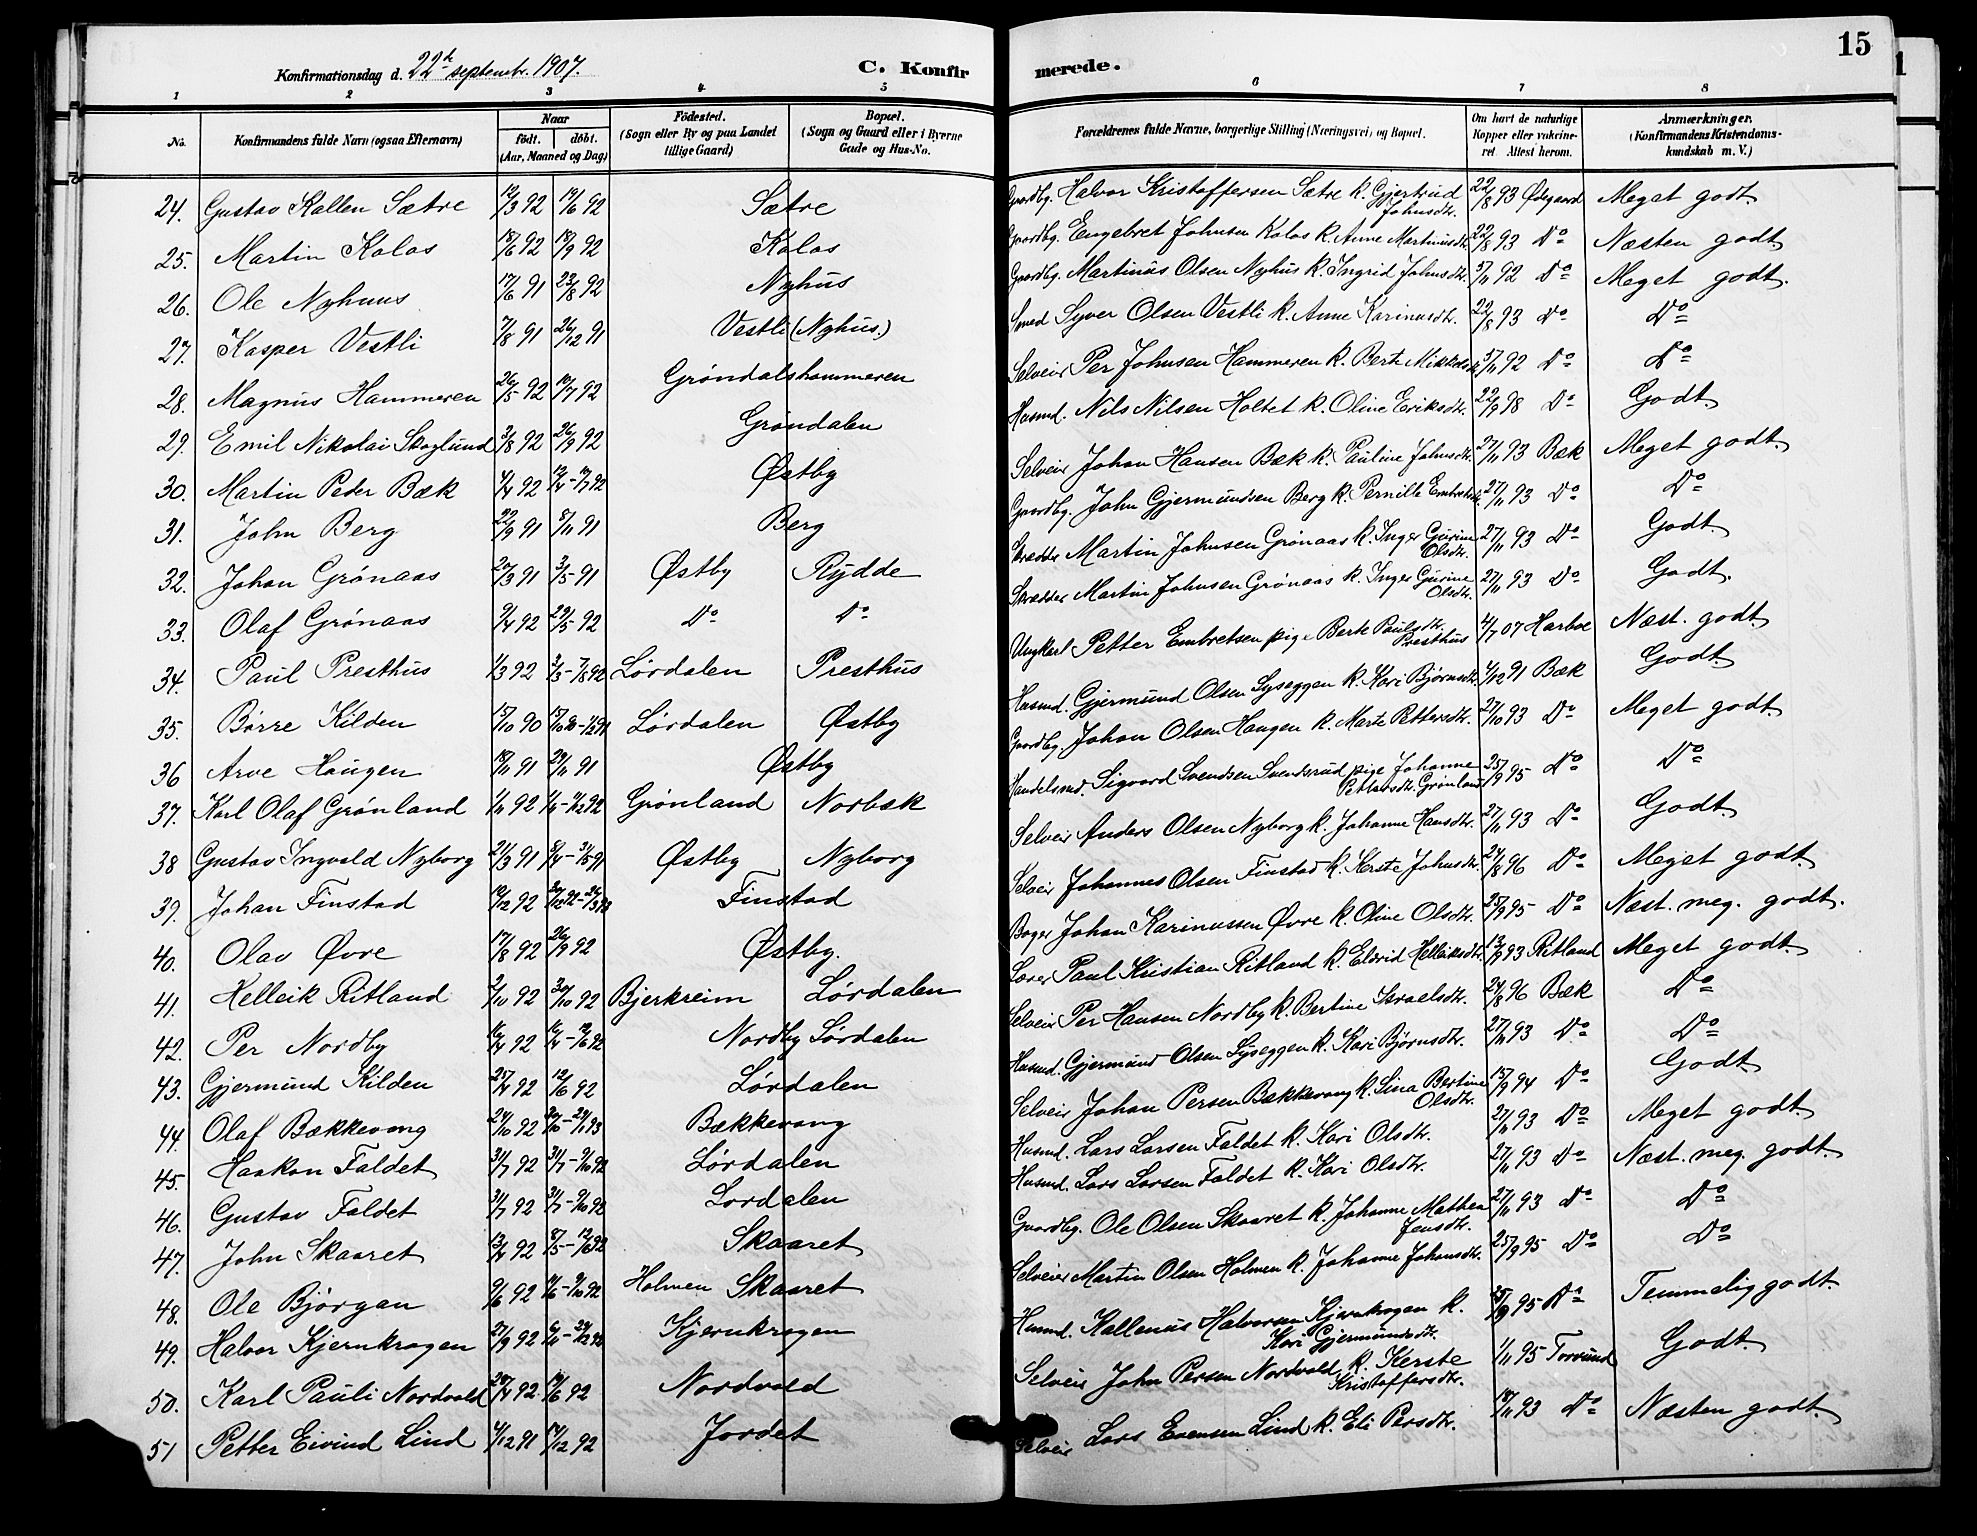 15
Konfirmationsdag d. 22de septembr. 1907.
C. Konfirmerede.
1 2 3 4 5 6 7 8
No. Konfirmandens fulde Navn (ogsaa Efternavn) Naar født. døbt. (Aar, Maaned og Dag) Fødested. (Sogn eller By og paa Landet tillige Gaard) Bopæl. (Sogn og Gaard eller i Byerne Gade og Hus-No. Forældrenes fulde Navne, borgerlige Stilling (Næringsvei) og Bopæl. Om havt de naturlige Kopper eller vakcineret. Attest herom. Anmærkninger. (Konfirmandens Kristendomskundskab m. V.)
24. Gustav Kallen Sætre 12/3 92 19/6 92 Sætre Gaardbg. Halvor Kristoffersen Sætre k. Gjertrud Johnsdtr. 22/8 93 Ødegaard Meget godt
25. Martin Kolos 18/6 92 18/9 92 Kolos Gaardbg. Engebret Johnsen Kolos k. Anne Martinusdtr. 22/8 93 Do Næsten godt
26. Ole Nyhuus 17/6 91 23/8 92 Nyhus Gaardbg. Martinus Olsen Nyhus k. Ingrid Johnsdtr. 5/11 92 Do Meget godt.
27. Kasper Vestli 7/8 91 26/12 91 Vestli (Nyhus.) Smed Syver Olsen Vestli k. Anne Karinusdtr. 22/8 93 Do Do
28. Magnus Hammeren 26/5 92 10/7 92 Grøndalshammeren Selveier Per Johnsen Hammeren k. Berte Mikkelsdtr. 5/11 92 Do Do
29. Emil Nikolai Skoglund 3/8 92 26/9 92 Grøndalen Husmd. Nils Nilsen Holtet k. Oline Eriksdtr. 22/9 98 Do Godt
30. Martin Peder Bæk 4/4 92 12/4 - 10/7 92 Østby Selveier Johan Hansen Bæk k. Pauline Johnsdtr. 27/11 93 Bæk Meget godt.
31. John Berg 22/9 91 8/11 91 Berg Gaardbg. John Gjermundsen Berg k. Pernille Embretsdtr. 27/11 93 Do Do
32. Johan Grønaas 20/3 91 3/5 91 Østby Rydde Skrædder Martin Johnsen Grønaas k. Inger Gurine Olsdtr. 27/11 93 Do Godt
33. Olaf Grønaas 9/4 92 29/5 92 Do Do Skrædder Martin Johnsen Grønaas k. Inger Gurine Olsdtr. 27/11 93 Do Godt.
34. Paul Presthus 1/3 92 3/3 - 7/8 92 Lørdalen Presthus Ungkarl Petter Embretsen pige Berte Paulsdtr. Presthus 4/7 07 Harboe Næst. godt
35. Børre Kilden 15/10 90 Lørdalen Østby Husmd. Gjermund Olsen Lyseggen k. Kari Bjørnsdtr. 4/12 91 Bæk Godt.
36 Arve Haugen 18/11 91 29/11 91 Østby Gaardbg. Johan Olsen Haugen k. Marte Pettersdtr. 27/10 93 Do Meget godt
37. Karl Olaf Grønland 1/11 92 Grønland Norbæk Handelsmd. Sigvard Svendsen Svendsrud pige Johanne Grønland 25/9 95 Do Do
38 Gustav Ingvald Nyborg 21/3 91 Østby Nyborg Selveier Anders Olsen Nyborg k. Johanne Hansdtr. 27/11 93 Do Godt
39. Johan Finstad 10/12 92 Finstad Selveier Johannes Olsen Finstad k. Kerste Johnsdtr. 24/8 96 Do Meget godt.
40. Olav Øvre 17/8 92 26/9 92 Østby. Bager Johan Karinussen Øvre k. Oline Olsdtr. 25/9 95 Do Næst. meg. godt.
41. Helleik Ritland 2/10 92 30/10 92 Bjerkreim Lørdalen Lærer Paul Kristian Ritland k. Eldrid Helleiksdtr. 13/9 93 Ritland Meget godt
42. Per Nordby 16/4 92 Nordby Lørdalen Selveier Per Hansen Nordby k. Bertine Israelsdtr. 24/8 96 Bæk Do
43. Gjermund Kilden 25/4 92 12/6 92 Lørdalen Husmd. Gjermund Olsen Lyseggen k. Kari Bjørnsdtr. 27/11 93 Do Do
44. Olaf Bækkevang 24/10 92 Bækkevang Selveier Johan Persen Bækkevang k. Lina Bertine Olsdtr. 15/9 94 Do Godt
45. Haakon Faldet 31/7 92 31/7 - 9/10 92 Lørdalen Husmd. Lars Larsen Faldet k. Kari Olsdtr. 27/11 93 Do Meget godt
46. Gustav Faldet 31/7 92 31/7 - 9/10 92 Lørdalen Husmd. Lars Larsen Faldet k. Kari Olsdtr. 27/11 93 Do Næst. meg. godt.
47. John Skaaret 13/4 92 8/5 - 12/6 92 Skaaret Gaardbg. Ole Olsen Skaaret k. Johanne Mathea Jensdtr. 27/11 93 Do Do
48. Ole Bjørgan 9/6 92 Holmen Skaaret Selveier Martin Olsen Holmen k. Johanne Johansdtr. 25/9 95 Do Do
49. Halvor Kjernkrogen 27/9 92 Kjernkrogen Husmd. Kallenius Halvorsen Kjernkrogen k. Kari Gjermundsdtr. 25/9 95 Do Temmelig godt.
50. Karl Pauli Nordvold 20/4 92 19/6 92 Nordvold Selveier John Persen Nordvold k. Kerste Kristoffersdtr. 1/11 95 Torsund Godt.
51 Petter Eivind Lind 4/12 91 Jordet Selveier Lars Evensen Lind k. Eli Persdtr. 18/11 93 Do Næsten godt.